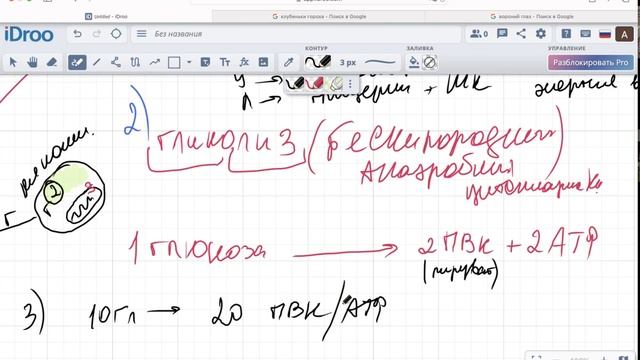 Untitled - iDroo
клубеньки гороха - Поиск в Google
вороний глаз - Поиск в Google
iDroo
Без названия
0
A
КОНТУР
ЗАЛИВКА
УПРАВЛЕНИЕ
3 px
Разблокировать Pro
У →
Л → глицерин + ЖК энергия в
2) гликолиз (бескислородный
анаэробный
1 глюкоза → 2 ПВК + 2 АТФ
(пируват)
2
г
3) 10 гл → 20 ПВК/АТФ